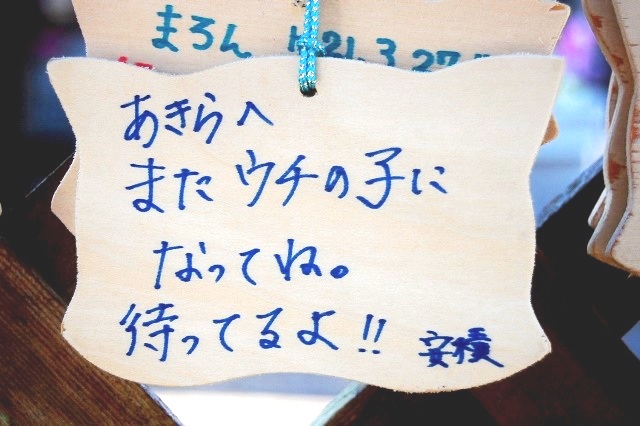 まろん H21.3.27
あきらへ
また ウチの子に
なってね。
待ってるよ!!
安積